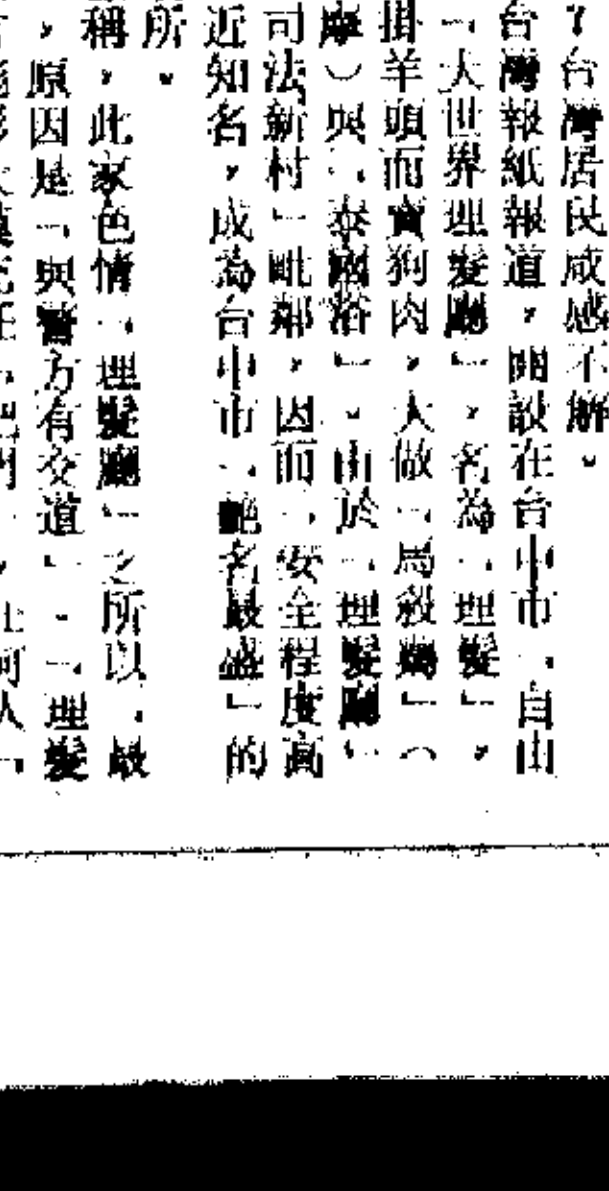 ，台灣居民咸感不解。
台灣報紙報道，開設在台中市「自由
「大世界理髮廳」，名為「理髮」，
掛羊頭而賣狗肉，大做「馬殺鷄」（
摩）與「泰國浴」。由於「理髮廳」
司法新村」毗鄰，因而「安全程度高
近知名，成為台中市「艷名最盛」的
所。
稱，此家色情「理髮廳」之所以「最
，原因是「與警方有交道」。「理髮